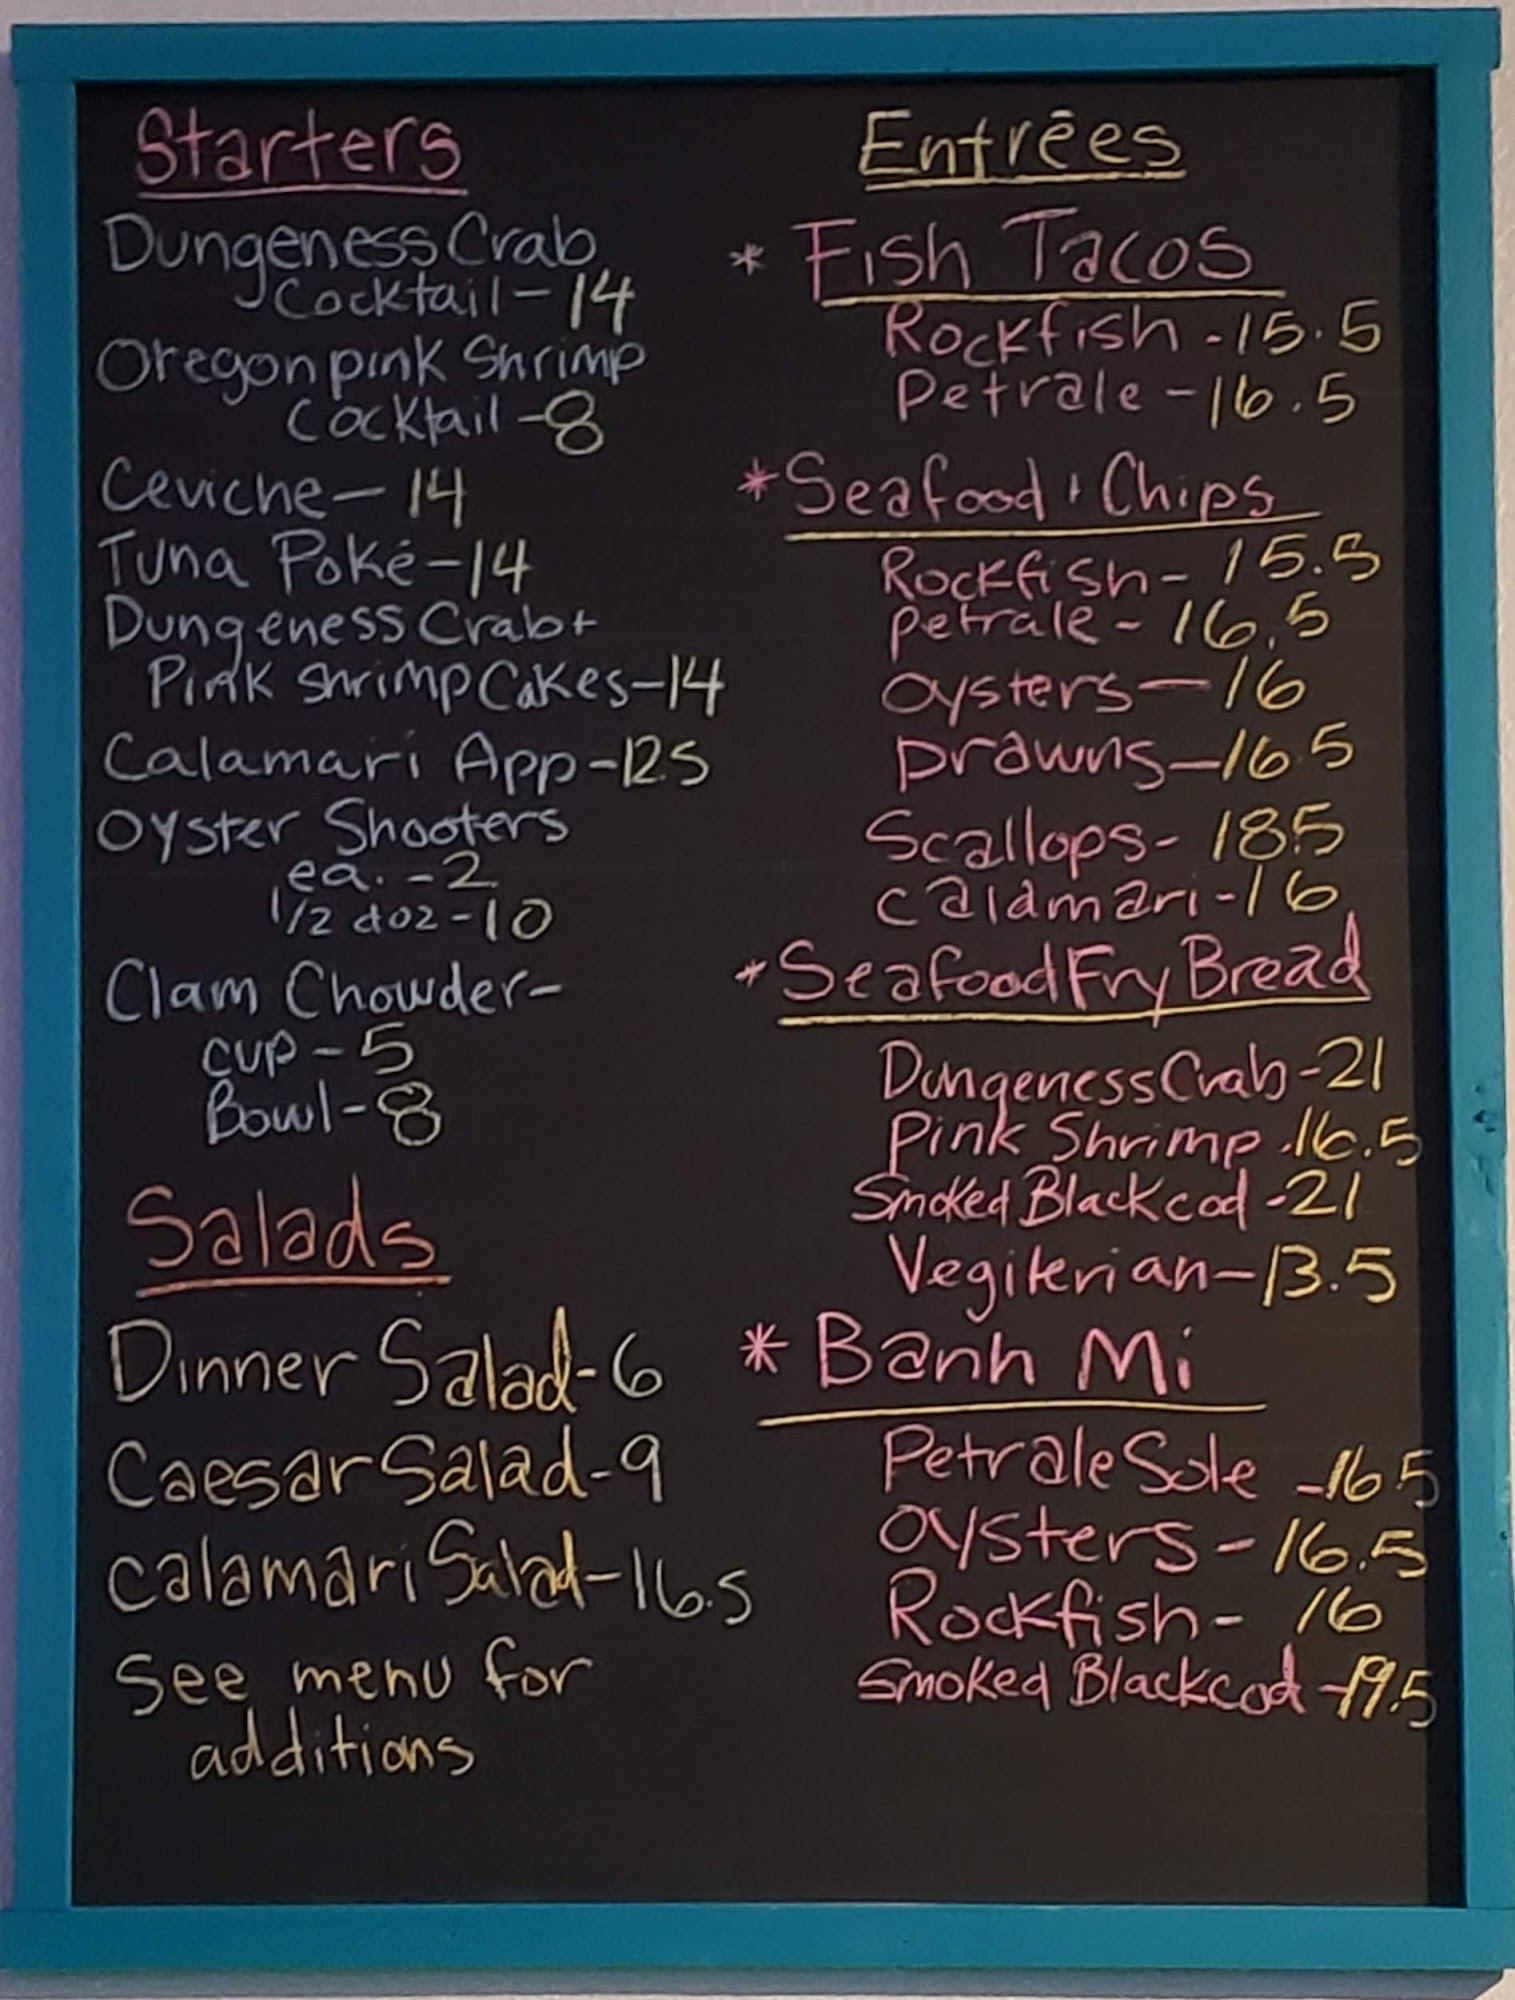 Starters
Dungeness Crab
Cocktail - 14
Oregon pink Shrimp
Cocktail - 8
Ceviche - 14
Tuna Poké - 14
Dungeness Crab +
Pink Shrimp Cakes - 14
Calamari App - 12.5
Oyster Shooters
ea. - 2
1/2 doz - 10
Clam Chowder -
cup - 5
Bowl - 8
Salads
Dinner Salad - 6
Caesar Salad - 9
Calamari Salad - 16.5
See menu for
additions
Entrēes
* Fish Tacos
Rockfish - 15.5
Petrale - 16.5
* Seafood + Chips
Rockfish - 15.5
petrale - 16.5
oysters - 16
prawns - 16.5
Scallops - 18.5
calamari - 16
* Seafood Fry Bread
Dungeness Crab - 21
Pink Shrimp - 16.5
Smoked Blackcod - 21
Vegiterian - 13.5
* Banh Mi
Petrale Sole - 16.5
oysters - 16.5
Rockfish - 16
Smoked Blackcod - 19.5